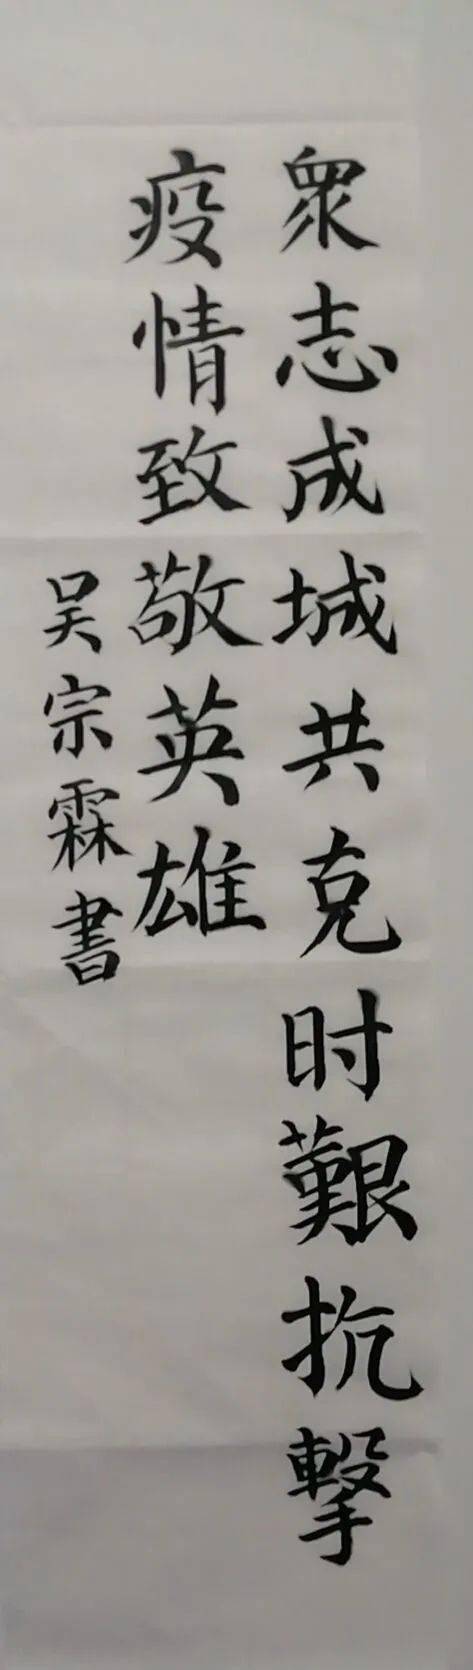 衆志成城共克时艱抗擊
疫情致敬英雄
吴宗霖書